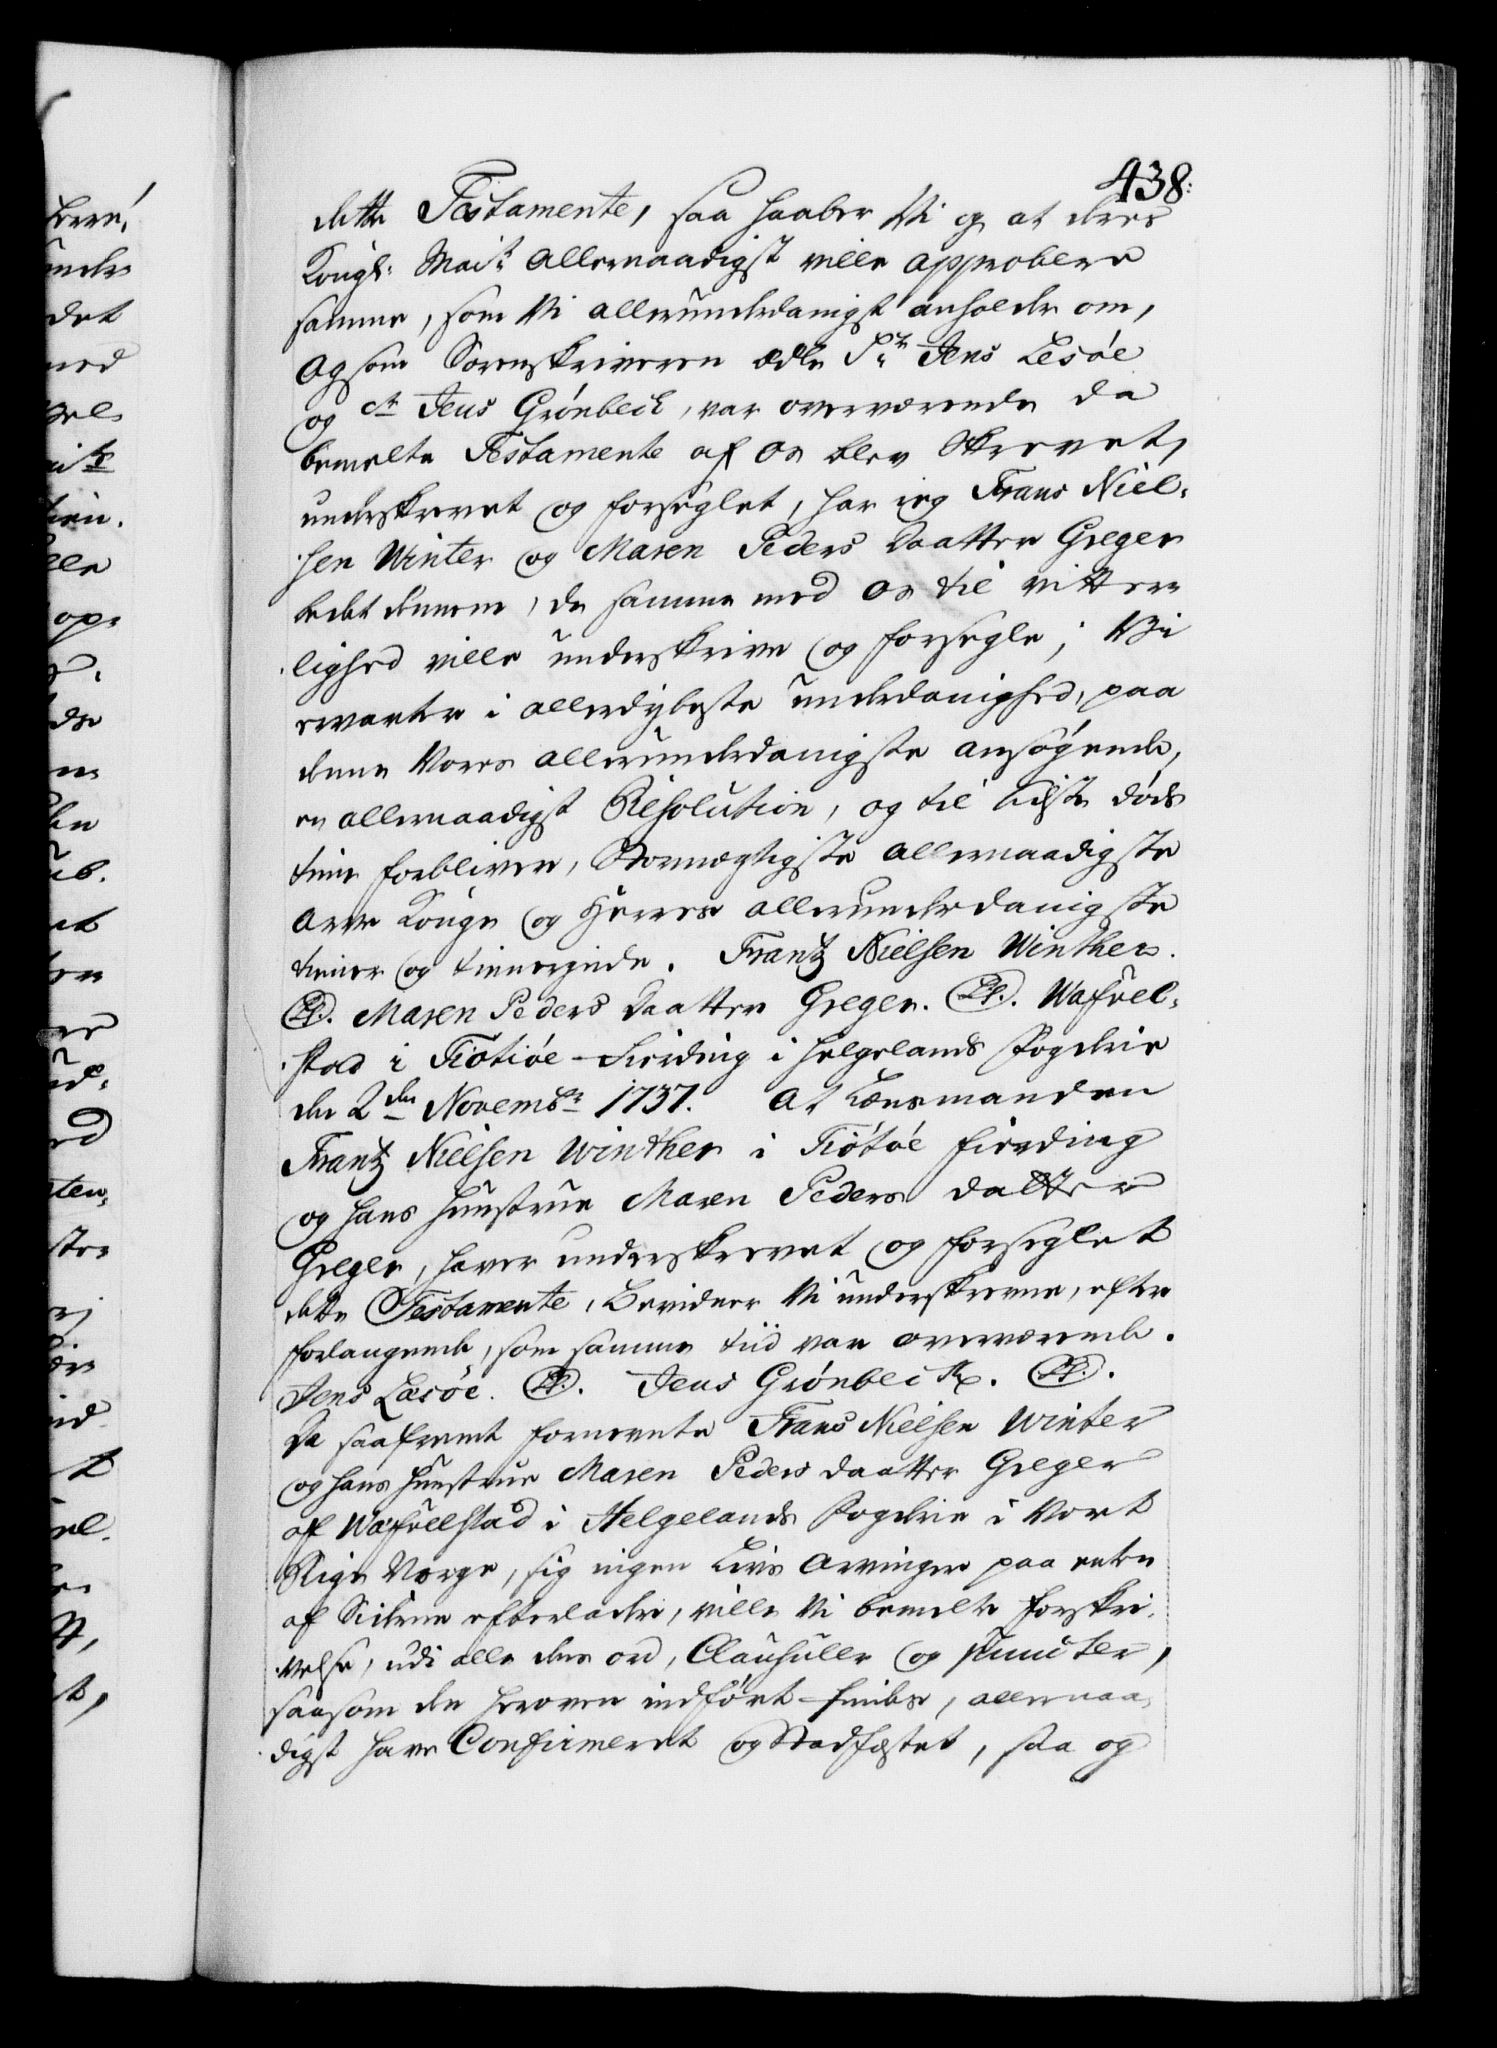 438.
dette Testamente, saa haaber Vi og at deres
Kongl: Mai:tt allernaadigst ville approbere
samme, som Vi allerunderdanigst anholder om,
og som Sorenskriveren ædle Sr Jens Lesøe
og Sr Jens Grönbech, var overværende da
bemelte Testamente af os blev skrevet,
underskrevet og forseglet, har ieg Frans Niel-
sen Winter og Maren Peders Daatter Greger
bedet dennem, de samme med os til vitter-
lighed ville underskrive og forsegle; Vi
erwarter i allerdybeste underdanighed, paa
denne Vores allerunderdanigste ansøgende,
en allernaadigst Resolution, og til sidste døds
time forbliver, Stormægtigste allernaadigste
Arve Konge og Herres allerunderdanigste
tiener og tienerinde. Frantz Nielsen Winther.
(L.S.) Maren Peders Daatter Greger. (L.S.) Wafvel-
stad i Tiötiöe-Fierding i Helgelands Fogderie
den 2den Novembr 1737. At Lænsmanden
Frantz Nielsen Winther i Tiötöe fierding
og hans Hustrue Maren Peders datter
Greger, haver underskrevet og forseglet
dette Testamente, bevidner Vi underskrevne, efter
forlangende, som samme tiid var overværende.
Jens Læsöe. (L.S.) Jens Grönbech. (L.S.)
Da saafremt fornevnte Frans Nielsen Winter
og hans Hustrue Maren Peders daatter Greger
af Wafvelstad i Helgelands Fogderie i Vort
Rige Norge, sig ingen Livs Arvinger paa enten
af Siderne efterlader, ville Vi bemelte forskri-
velse, udi alle dens ord, Clausuller og puncter,
saasom den heroven indført findes, allernaa-
digst have Confirmeret og Stadfæstet, saa og